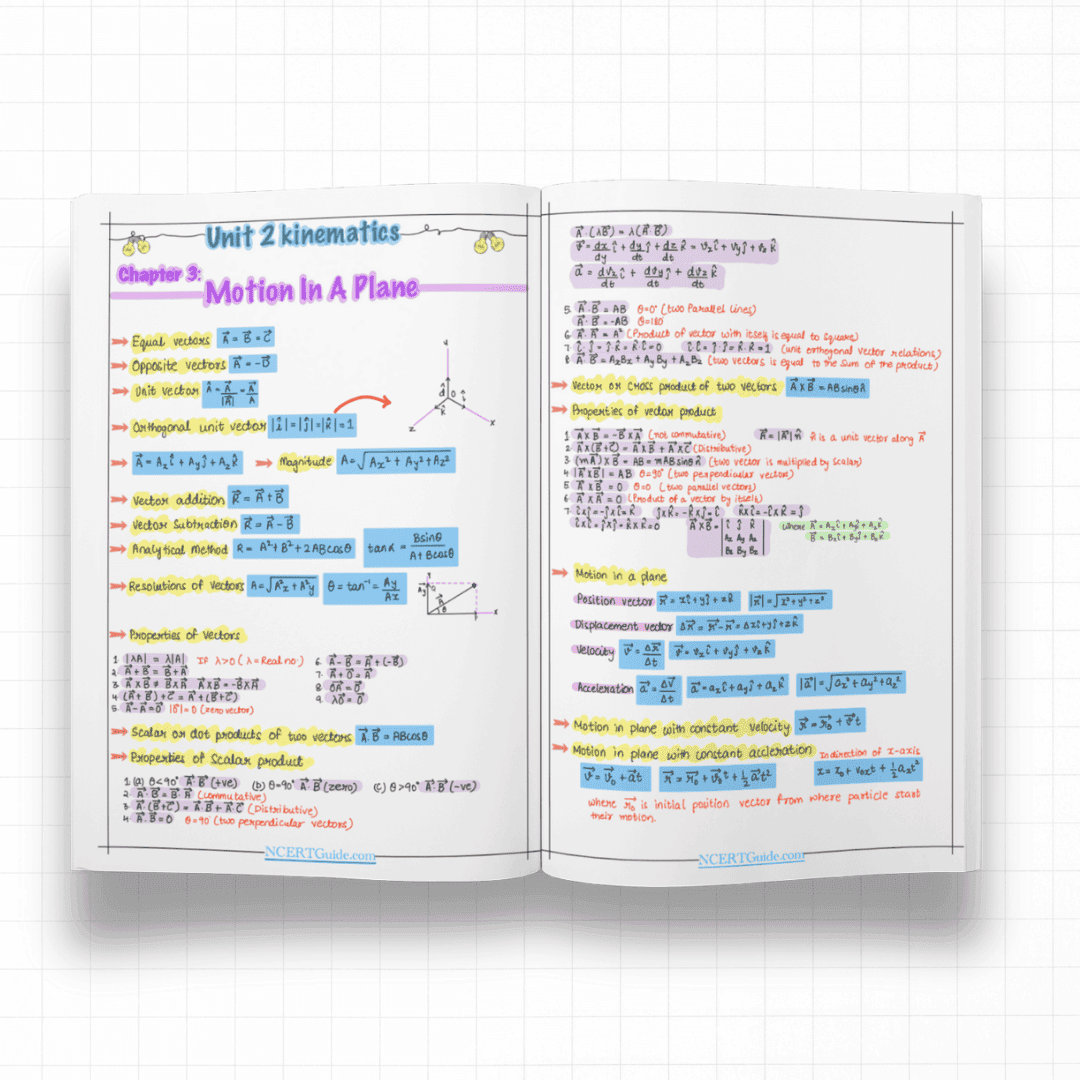 Unit 2 kinematics
Chapter 3:
Motion In A Plane
Equal vectors A⃗ = B⃗ = C⃗
Opposite vectors A⃗ = -B⃗
Unit vector Â = A⃗/|A⃗| = A⃗/A
Orthogonal unit vector |î| = |ĵ| = |k̂| = 1
y
O
z
x
A⃗ = Axî + Ayĵ + Azk̂ Magnitude A = √Ax² + Ay² + Az²
Vector addition R⃗ = A⃗ + B⃗
Vector Subtraction R⃗ = A⃗ - B⃗
Analytical method R = A² + B² + 2ABcosθ tanα = Bsinθ/A + Bcosθ
Resolutions of Vectors A = √A²x + A²y θ = tan⁻¹ = Ay/Ax
Properties of Vectors
1. |λA| = λ|A| If λ>0 (λ = Real no.)
2. A⃗ + B⃗ = B⃗ + A⃗
3. A⃗ x B⃗ ≠ B⃗ x A A⃗ x B⃗ = -B⃗ x A⃗
4. (A⃗ + B⃗) + C⃗ = A⃗ + (B⃗ + C⃗)
5. A⃗ - A⃗ = 0⃗ |0⃗| = 0 (zero vector)
6. A⃗ - B⃗ = A⃗ + (-B⃗)
7. A⃗ + 0⃗ = A⃗
8. 0A⃗ = 0⃗
9. λ0⃗ = 0⃗
Scalar or dot products of two vectors A⃗.B⃗ = ABcosθ
Properties of Scalar product
1. (a) θ<90° A⃗.B⃗ (+ve) (b) θ=90° A⃗.B⃗ (zero) (c) θ>90° A⃗.B⃗ (-ve)
2. A⃗.B⃗ = B⃗.A⃗ (Commutative)
3. A⃗.(B⃗+C⃗) = A⃗.B⃗ + A⃗.C⃗ (Distributive)
4. A⃗.B⃗ = 0 θ=90 (two perpendicular vectors)
NCERTGuide.com
A⃗.(λB⃗) = λ(A⃗.B⃗)
v⃗ = dx/dy î + dy/dt ĵ + dz/dt k̂ = vxî + vyĵ + vzk̂
a⃗ = dvx/dt î + dvy/dt ĵ + dvz/dt k̂
5. A⃗.B⃗ = AB θ=0° (two Parallel lines)
A⃗.B⃗ = -AB θ=180°
6. A⃗.A⃗ = A² (Product of vector with itself is equal to square)
7. î.ĵ = ĵ.k̂ = k̂.î = 0 î.î = ĵ.ĵ = k̂.k̂ = 1 (unit orthogonal vector relations)
8. A⃗.B⃗ = AxBx + AyBy + AzBz (two vectors is equal to the sum of the product)
Vector or cross product of two vectors A⃗ x B⃗ = ABsinθn̂
Properties of vector product
1. A⃗ x B⃗ = -B⃗ x A⃗ (not commutative) A⃗ = |A⃗| n̂ n̂ is a unit vector along A⃗
2. A⃗ x (B⃗ + C⃗) = A⃗ x B⃗ + A⃗ x C⃗ (Distributive)
3. (mA⃗) x B⃗ = AB = mABsinθn̂ (two vector is multiplied by scalar)
4. |A⃗ x B⃗| = AB θ=90° (two perpendicular vectors)
5. A⃗ x B⃗ = 0 θ=0 (two parallel vectors)
6. A⃗ x A⃗ = 0 (Product of a vector by itself)
7. î x ĵ = -ĵ x î = k̂ ĵ x k̂ = -k̂ x ĵ = î k̂ x î = -î x k̂ = ĵ
î x î = ĵ x ĵ = k̂ x k̂ = 0
A⃗ x B⃗ = | î ĵ k̂ |
Ax Ay Az
Bx By Bz
Where A⃗ = Axî + Ayĵ + Azk̂
B⃗ = Bxî + Byĵ + Bzk̂
Motion in a plane
Position vector r⃗ = xî + yĵ + zk̂ |r⃗| = √x² + y² + z²
Displacement vector Δr⃗ = r⃗' - r⃗ = Δxî + yĵ + zk̂
Velocity v⃗ = Δr⃗/Δt v⃗ = vxî + vyĵ + vzk̂
Acceleration a⃗ = Δv⃗/Δt a⃗ = axî + ayĵ + azk̂ |a⃗| = √ax² + ay² + az²
Motion in plane with constant velocity r⃗ = r⃗0 + v⃗t
Motion in plane with constant accleration In direction of x-axis
v⃗ = v⃗0 + a⃗t r⃗ = r⃗0 + v⃗0t + 1/2 a⃗t² x = x0 + v0xt + 1/2 axt²
where r⃗0 is initial position vector from where particle start
their motion.
NCERTGuide.com